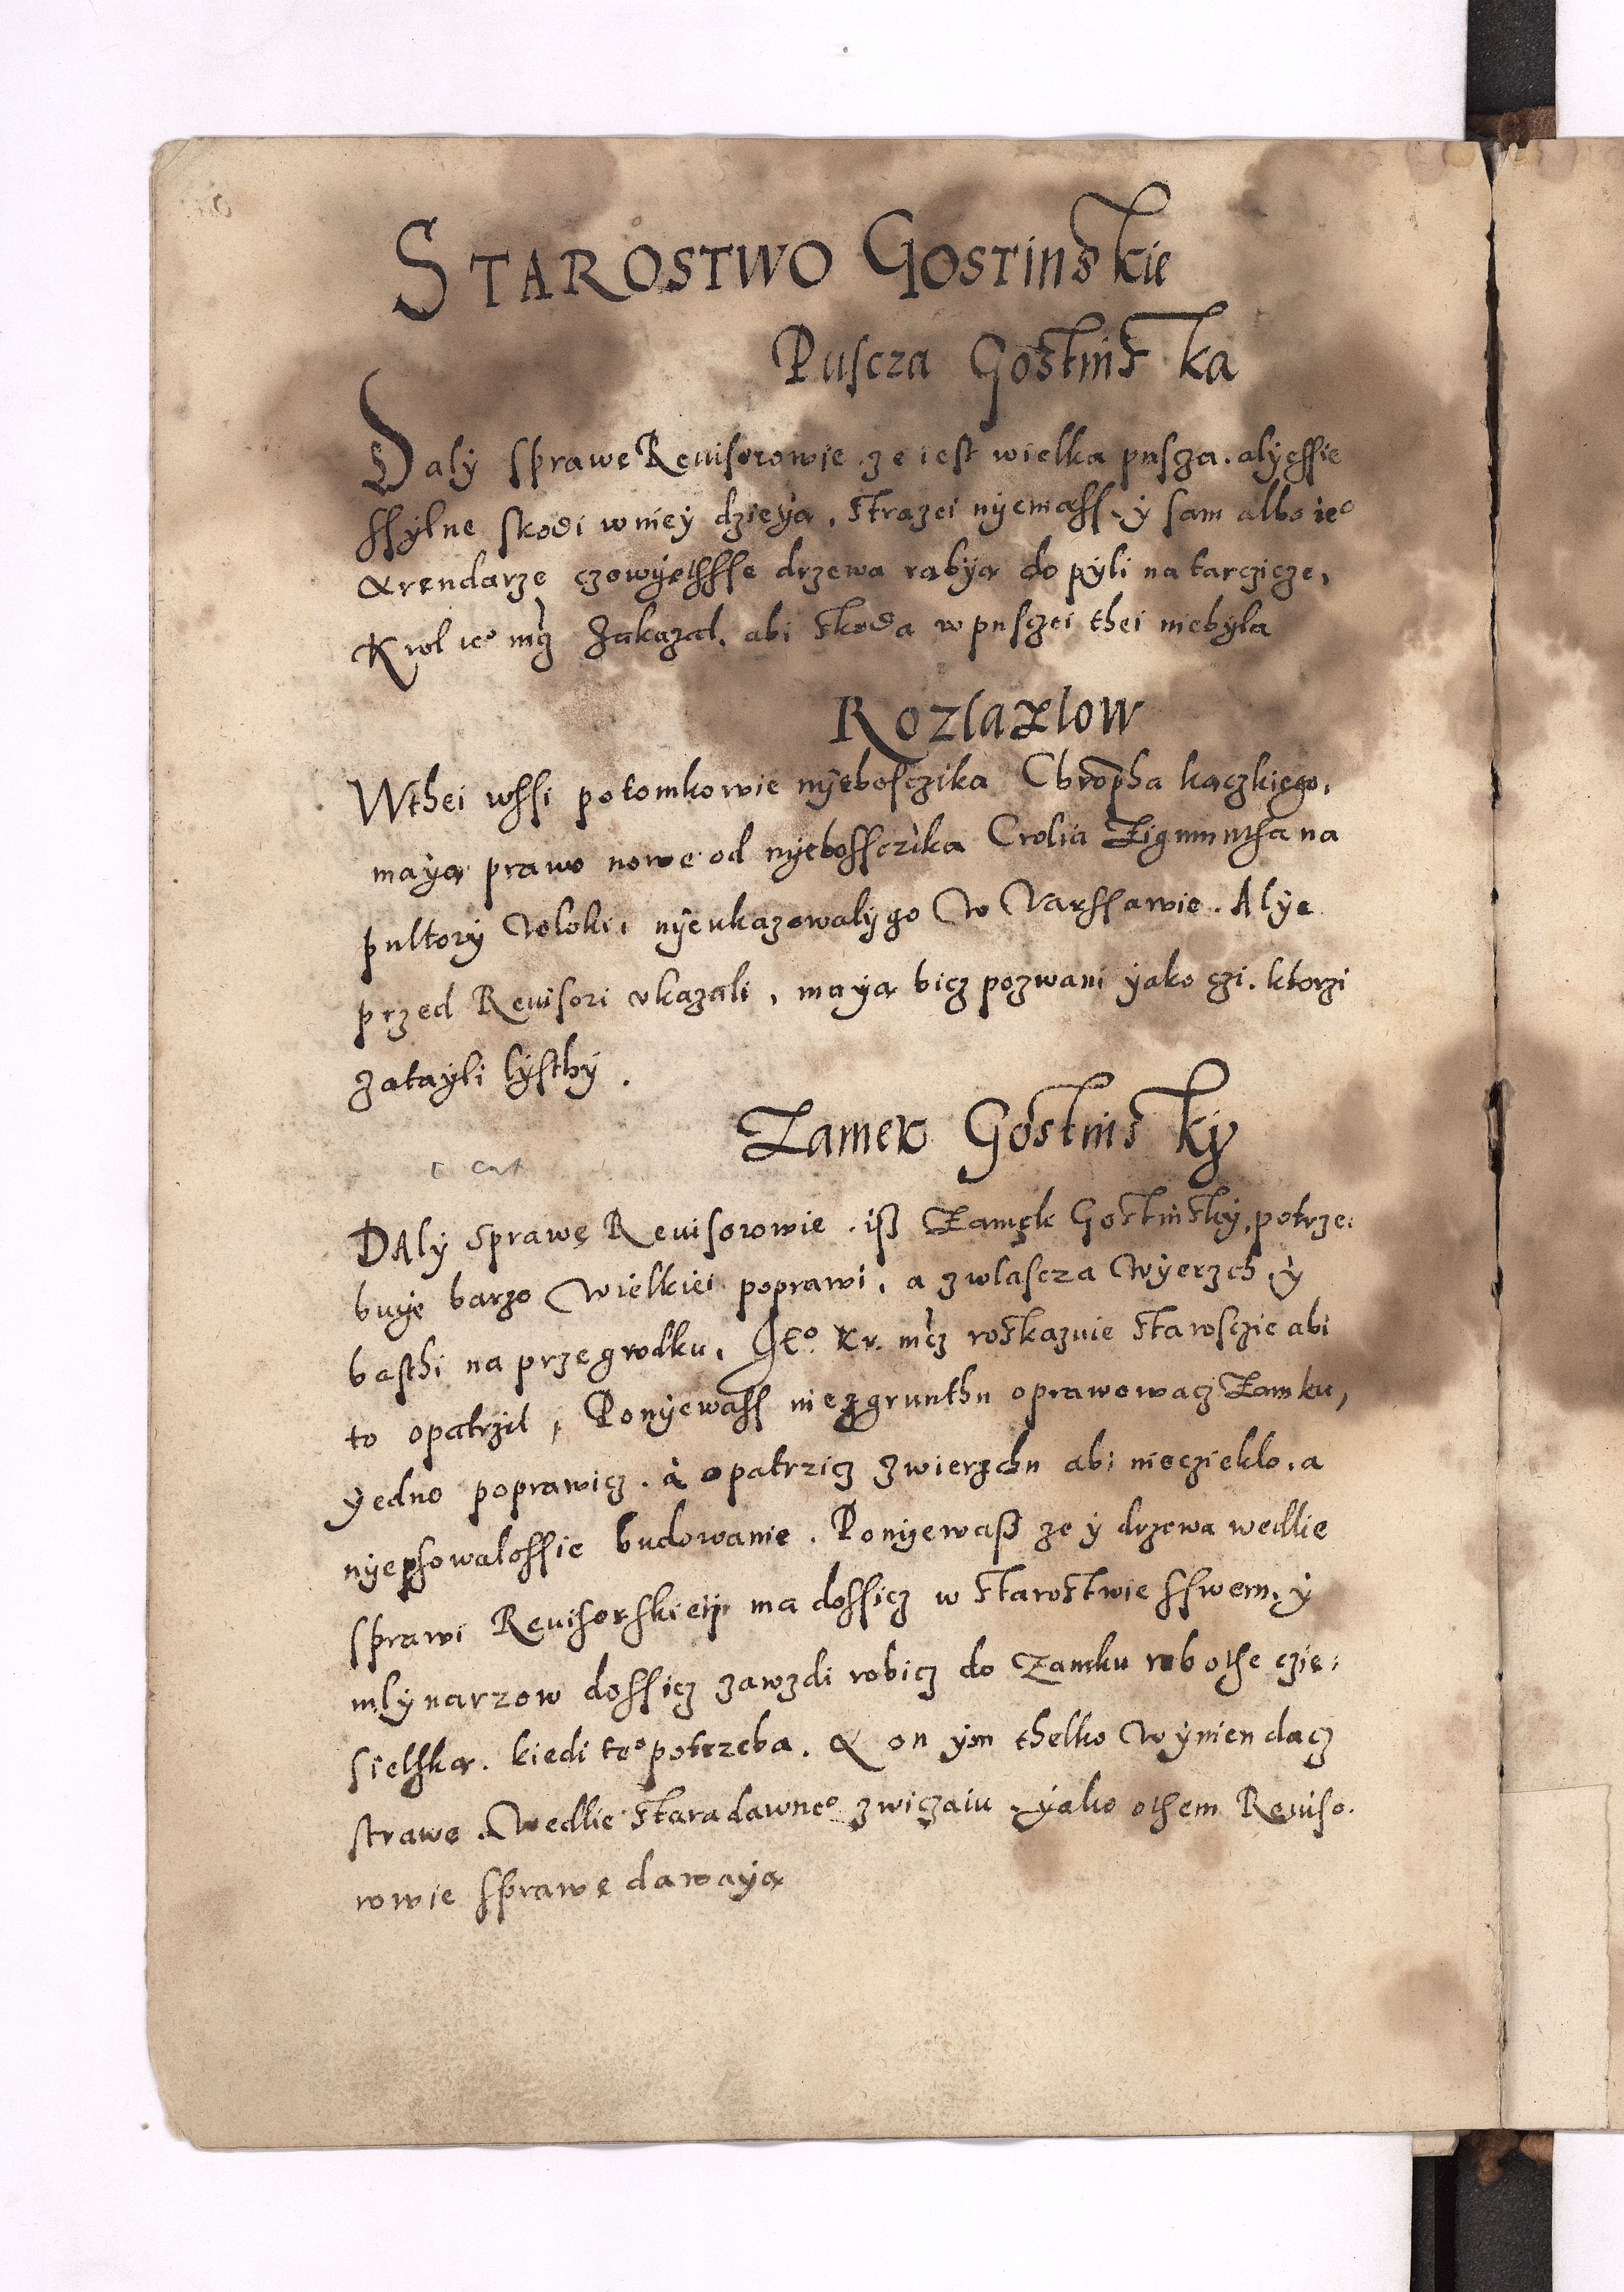 STAROSTWO GOSTINSkie
Puscza GostinSka
Daly sprawę Reuisorowie ze iest wielka pusza. alyessie
ssylne skodi w niey dzieya, Strazei nyemass, y sam albo ieº
Arendarze czowyethsse drzewa rabya do pyli na tarczicze,
Krol ieº mcz Zakazal, abi Skoda w pusczei thei niebyla
ROZlazlow
Wthei wssi potomkowie nyebosczika Chropha kaczkiego,
maya prawo nowe od nyebossczika Crolia Zigmuntha na
pultory Woloki, nyeukazowaly go W Varssawie. Alye
przed Reuisori ukazali, maya bicz pozwani yako czi. ktorzi
zatayli lysthy.
Zamek GostinSky
DAly Sprawę Reuisorowie. iß Zamęk GoStinSky, potrze:
buye barzo Wielkiei poprawi, a zwlascza Wyerzch y
basthi na przegrodku, Jeº. Kr. mcz roSkazuie Staroszie abi
to opatrzil, Ponyewass nie zgrunthu oprawowacz Zamku,
yedno poprawicz. a opatrzicz Zwierzchu abi niecziekło, a
nyepsowalossie budowanie. Ponyewaß ze y drzewa wedlie
sprawi Reuisorskieij ma dossicz w StaroStwie sswem, y
mlynarzow dossicz zawzdi robicz do Zamku robothe czie:
sielska. kiedi teº potrzeba. A on ym thelko Wynien dacz
strawe. Wedlie Staradawneº zwiczaiu, yako othem Reuiso.
rowie sprawę dawaya